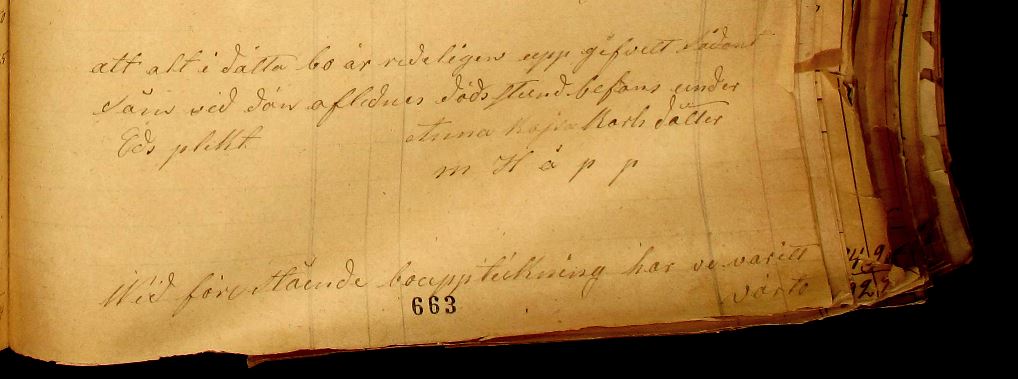 att alt i dätta bo är redeligen upp gifvett sådant
Såm vid dön aflednes dödsstund befans under
Eds plikt Anna Kajsa Karlsdåtter
m H å p p
Wid föreståënde boupptëckning har vi varitt
vårto
663